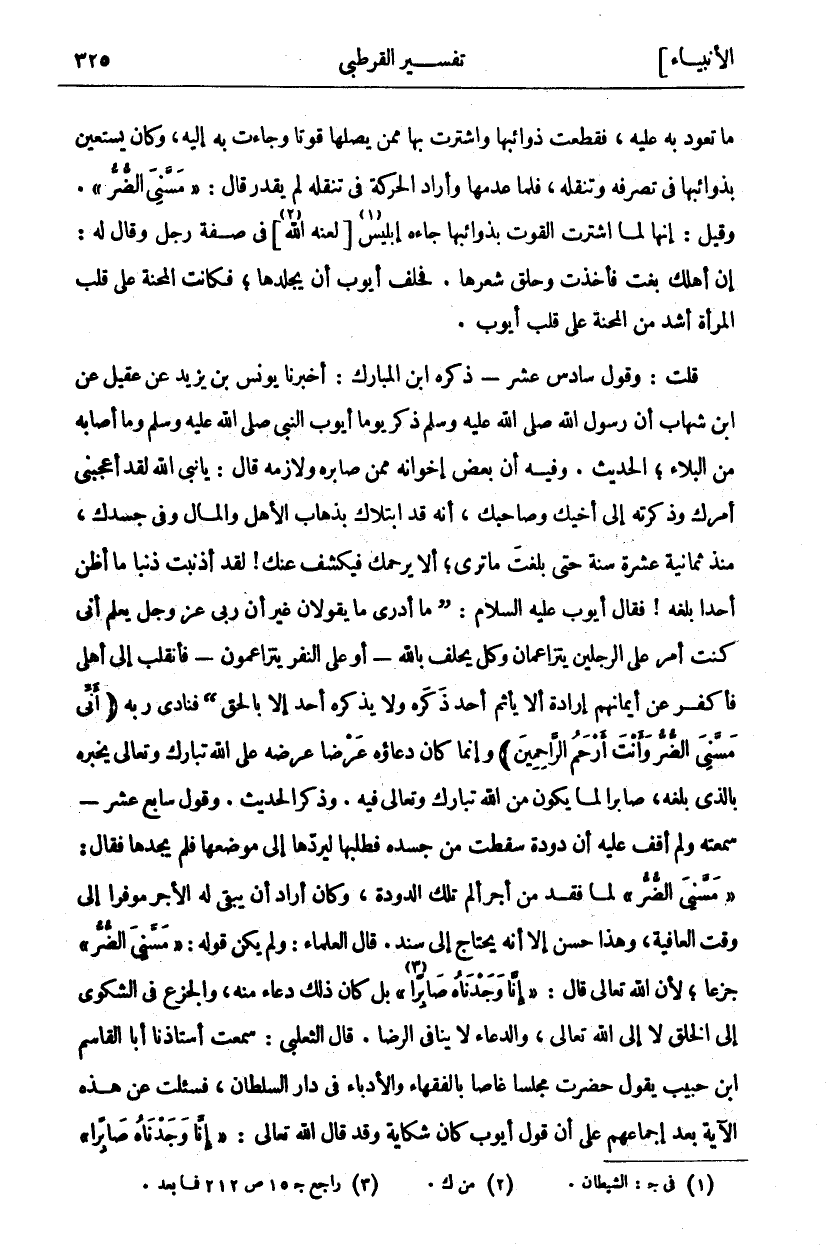 الأنبياء] تفسير القرطبى ٣٢٥
ما تعود به عليه ، فقطعت ذوائبها واشترت بها ممن يصلها قوتا وجاءت به إليه، وكان يستعين
بذوائبها فى تصرفه وتنقله ، فلما عدمها وأراد الحركة فى تنقله لم يقدر قال : « مَسَّنِىَ الضُّرُّ » .
وقيل : إنها لما اشترت القوت بذوائبها جاءه إبليس (١) [ لعنه الله (٢) ] فى صفة رجل وقال له :
إن أهلك بغت فأخذت وحلق شعرها . فحلف أيوب أن يجلدها ؛ فكانت المحنة على قلب
المرأة أشد من المحنة على قلب أيوب .
قلت : وقول سادس عشر — ذكره ابن المبارك : أخبرنا يونس بن يزيد عن عقيل عن
ابن شهاب أن رسول الله صلى الله عليه وسلم ذكر يوما أيوب النبى صلى الله عليه وسلم وما أصابه
من البلاء ؛ الحديث . وفيه أن بعض إخوانه ممن صابره ولازمه قال : يا نبى الله لقد أعجبنى
أمرك وذكرته إلى أخيك وصاحبك ، أنه قد ابتلاك بذهاب الأهل والمال وفى جسدك ،
منذ ثمانية عشرة سنة حتى بلغتَ ما ترى؛ ألا يرحمك فيكشف عنك! لقد أذنبت ذنبا ما أظن
أحدا بلغه ! فقال أيوب عليه السلام : ” ما أدرى ما يقولان غير أن ربى عز وجل يعلم أنى
كنت أمر على الرجلين يتزاعمان وكل يحلف بالله — أو على النفر يتزاعمون — فأنقلب إلى أهلى
فأكفر عن أيمانهم إرادة ألا يأثم أحد ذَكَره ولا يذكره أحد إلا بالحق “ فنادى ربه ( أَنِّى
مَسَّنِىَ الضُّرُّ وَأَنْتَ أَرْحَمُ الرَّاحِمِينَ ) وإنما كان دعاؤه عَرْضا عرضه على الله تبارك وتعالى يخبره
بالذى بلغه، صابرا لما يكون من الله تبارك وتعالى فيه . وذكر الحديث . وقول سابع عشر —
سمعته ولم أقف عليه أن دودة سقطت من جسده فطلبها ليردّها إلى موضعها فلم يجدها فقال :
« مَسَّنِىَ الضُّرُّ » لما فقد من أجر ألم تلك الدودة ، وكان أراد أن يبقى له الأجر موفرا إلى
وقت العافية، وهذا حسن إلا أنه يحتاج إلى سند. قال العلماء : ولم يكن قوله : « مَسَّنِىَ الضُّرُّ »
جزعا ؛ لأن الله تعالى قال : « إِنَّا وَجَدْنَاهُ صَابِرًا (٣) » بل كان ذلك دعاء منه، والجزع فى الشكوى
إلى الخلق لا إلى الله تعالى ، والدعاء لا ينافى الرضا . قال الثعلبى : سمعت أستاذنا أبا القاسم
ابن حبيب يقول حضرت مجلسا غاصا بالفقهاء والأدباء فى دار السلطان ، فسئلت عن هذه
الآية بعد إجماعهم على أن قول أيوب كان شكاية وقد قال الله تعالى : « إِنَّا وَجَدْنَاهُ صَابِرًا »
(١) فى جـ : الشيطان . (٢) من ك . (٣) راجع جـ ١٥ ص ٢١٢ فما بعد .